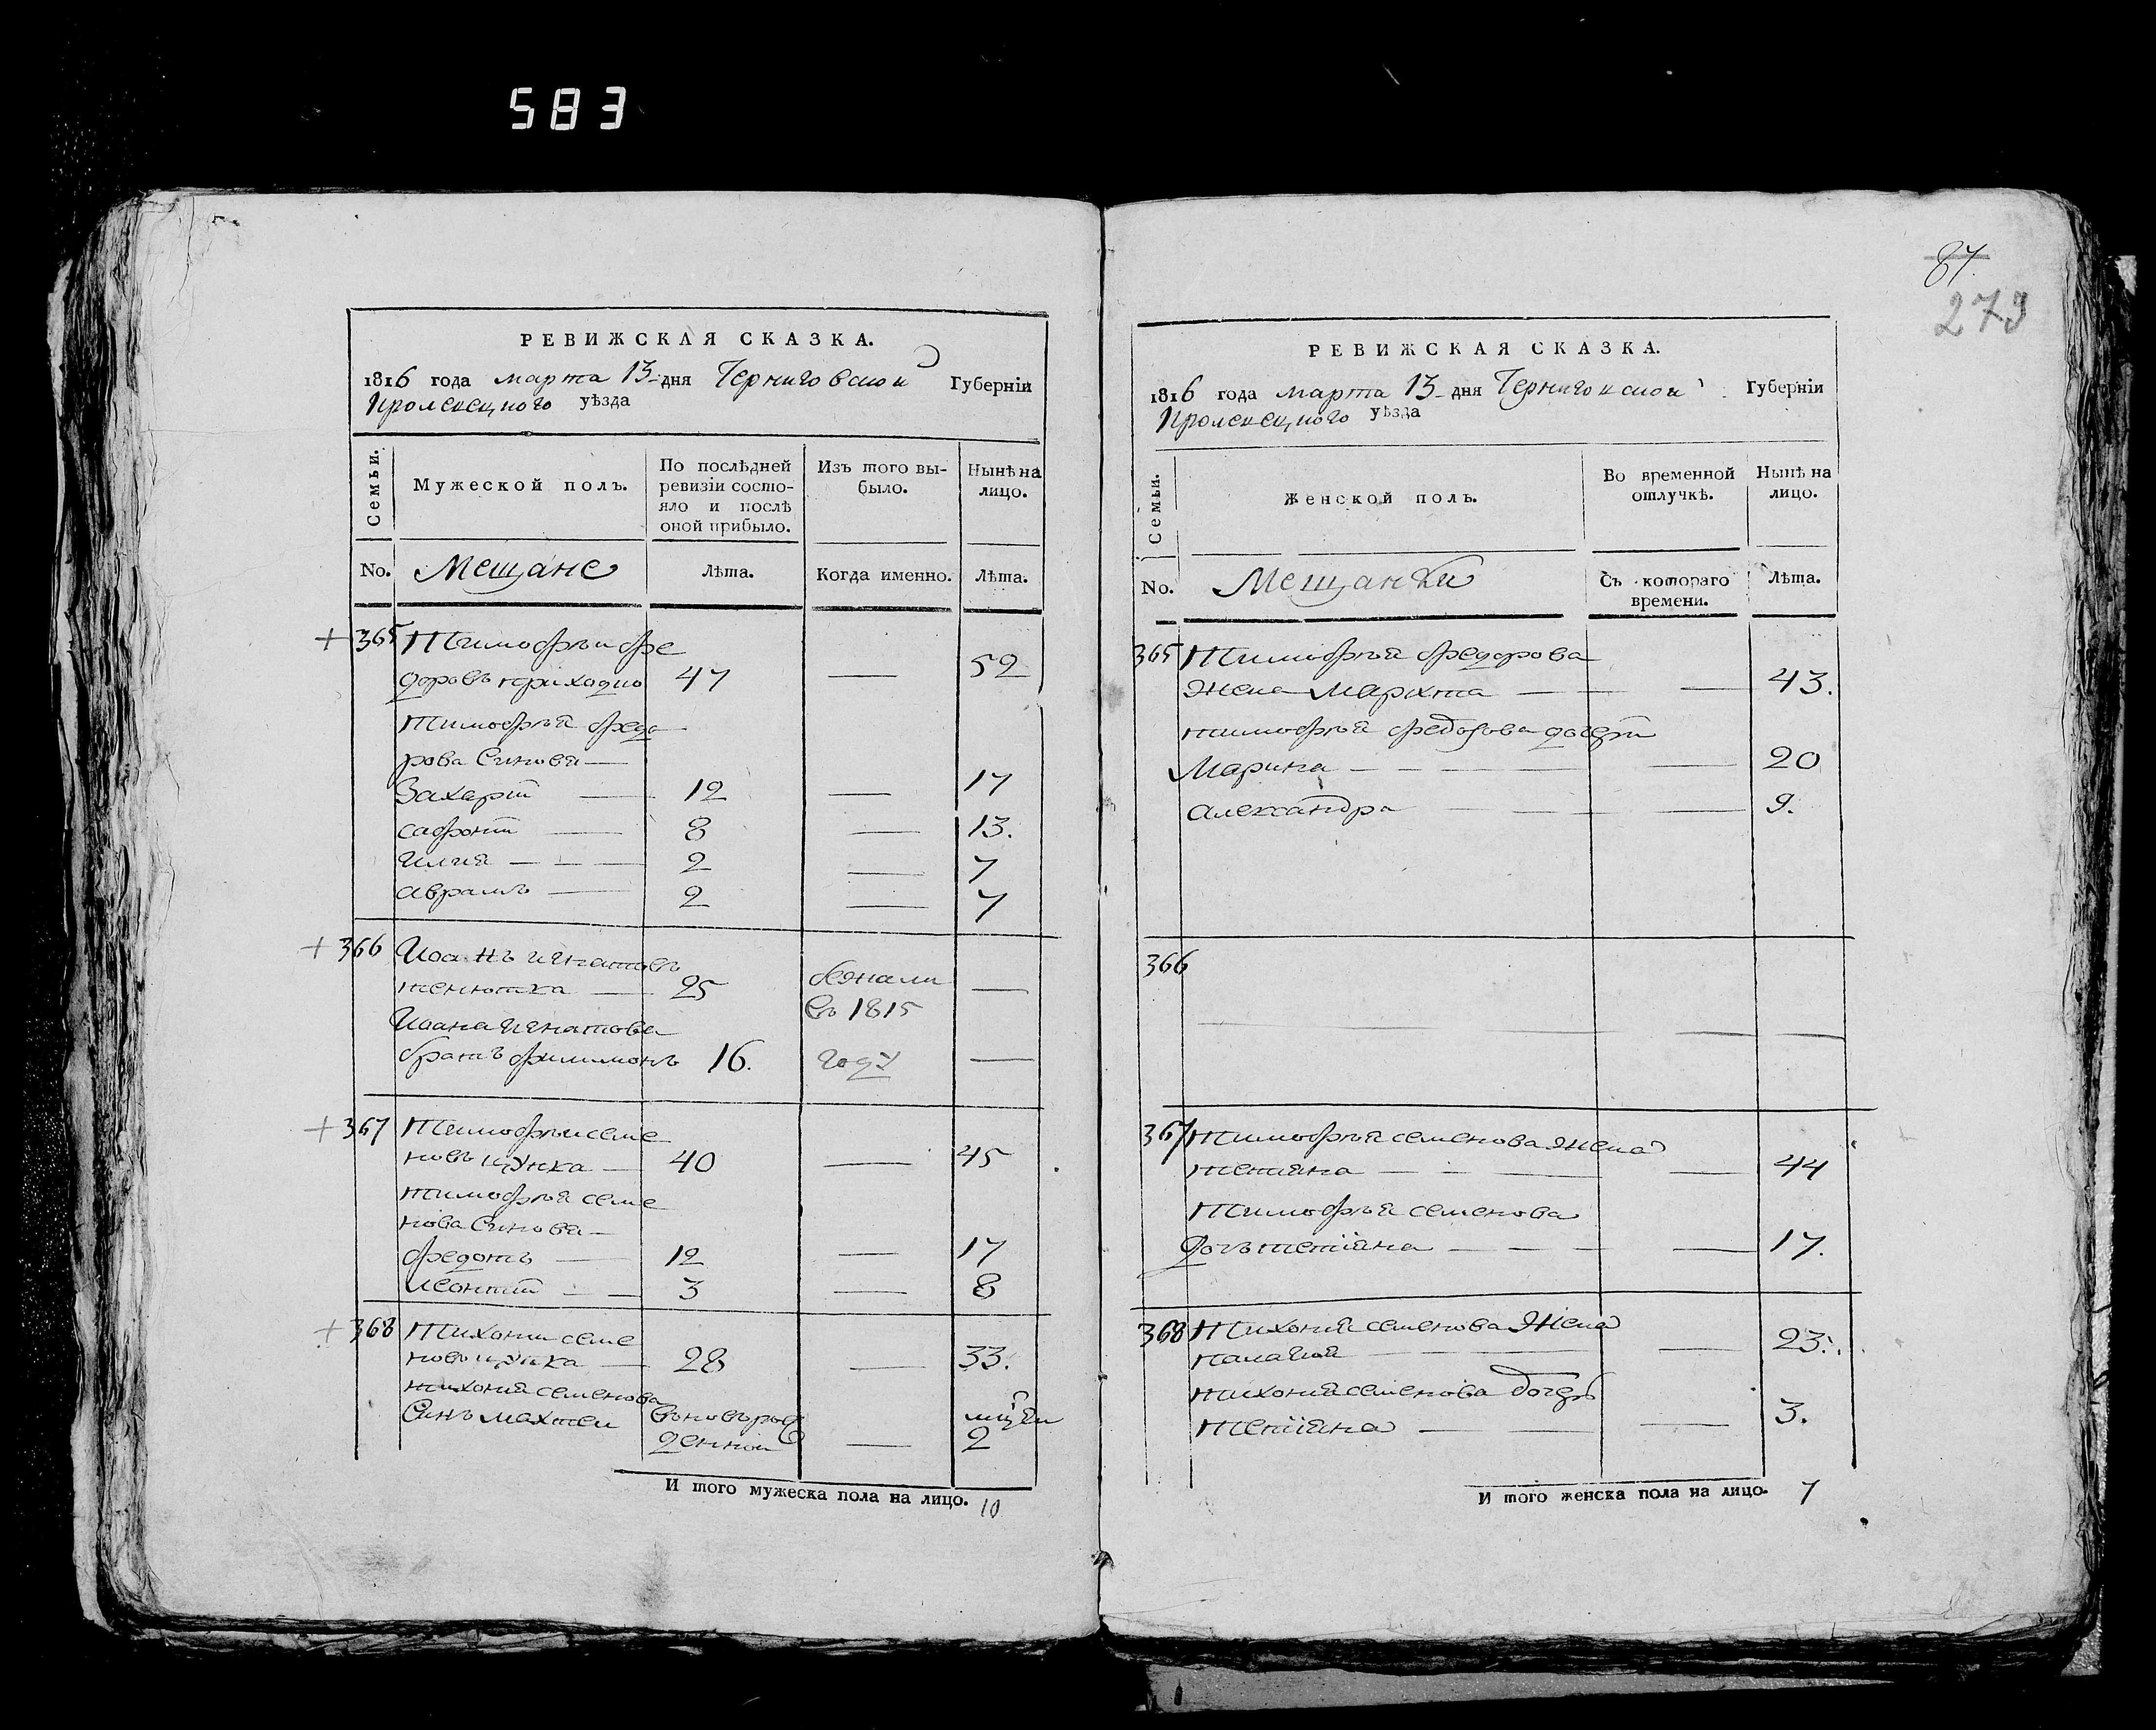 583
РЕВИЖСКАЯ СКАЗКА.
1816 года марта 13 дня Черниговской Губерніи
Кролевецкого уѣзда
Семьи.
Мужеской полъ.
По послѣдней ревизіи состо-
яло и послѣ оной прибыло.
Изъ того вы-
было.
Нынѣ на
лицо.
No.
Мещане
Лѣта.
Когда именно.
Лѣта.
+ 365 Тимофѣи фе
доровъ приходко 47 — 52
тимофѣя федо
рова Синовя —
Захарій — 12 — 17
сафроній — 8 — 13.
Илия — — — 2 — 7
аврамъ — 2 — 7
+ 366 Иоанъ игнатовъ
— 25 бежали —
въ 1815
Иоана Игнатова
братъ филимонъ 16. году —
+ 367 Тимофѣи семе
новъ цупка — 40 — 45
тимофѣя семе
нова Синовя —
федотъ — 12 — 17
леонтій — — 3 — 8
+ 368 Тихонъ семе
новъ цупка — 28 — 33.
тихония семенова
Синъ махтеи вновьрож
денной — 2
И того мужеска пола на лицо. 10
67
273
РЕВИЖСКАЯ СКАЗКА.
1816 года марта 13 дня Черниговской Губерніи
Кролевецкого уѣзда
Семьи.
Женской полъ.
Во временной
отлучкѣ.
Нынѣ на
лицо.
No.
Мещанки
Съ котораго
времени.
Лѣта.
365 Тимофѣя федорова
жена Марфта — — — 43.
тимофѣя федорова дочери
Марина — — — — — 20
александра — — — 9.
366
— — —
367 Тимофѣя семенова жена
тетияна — — — — 44
Тимофѣя семенова
дочь тетіяна — — — — 17.
368 Тихония семенова жена
палагия — — — 23.
тихония семенова дочерь
Тетіяна — — — 3.
И того женска пола на лицо. 7